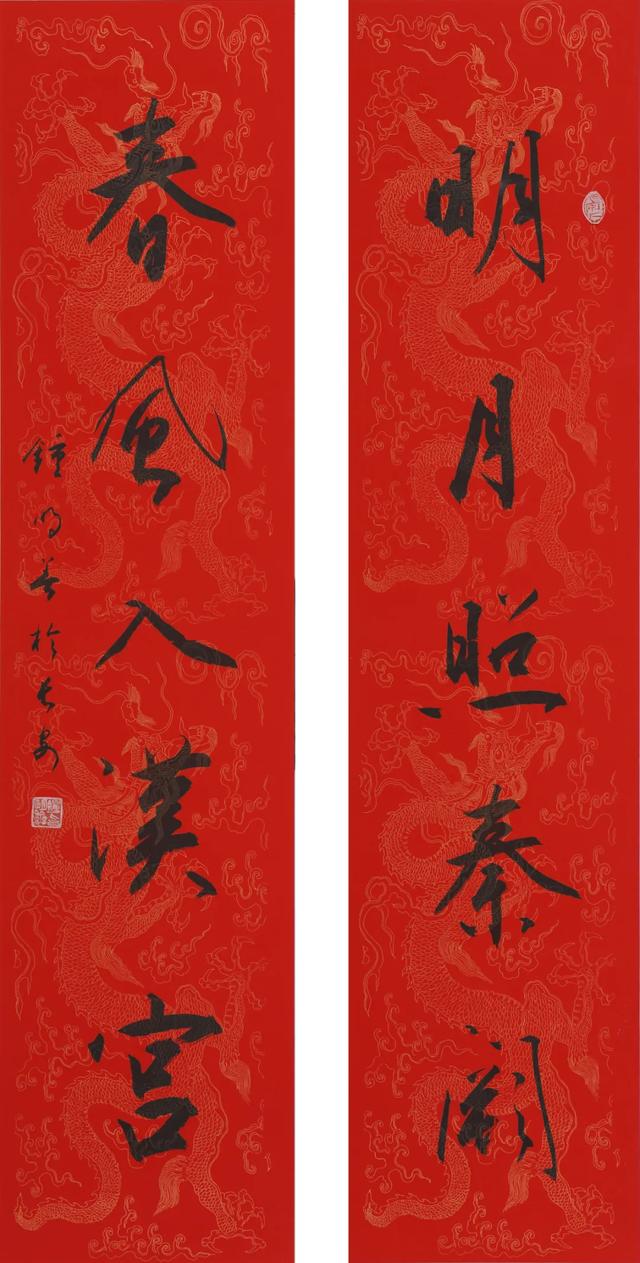 明月照秦阙
春風入漢宮
鐘明善於长安